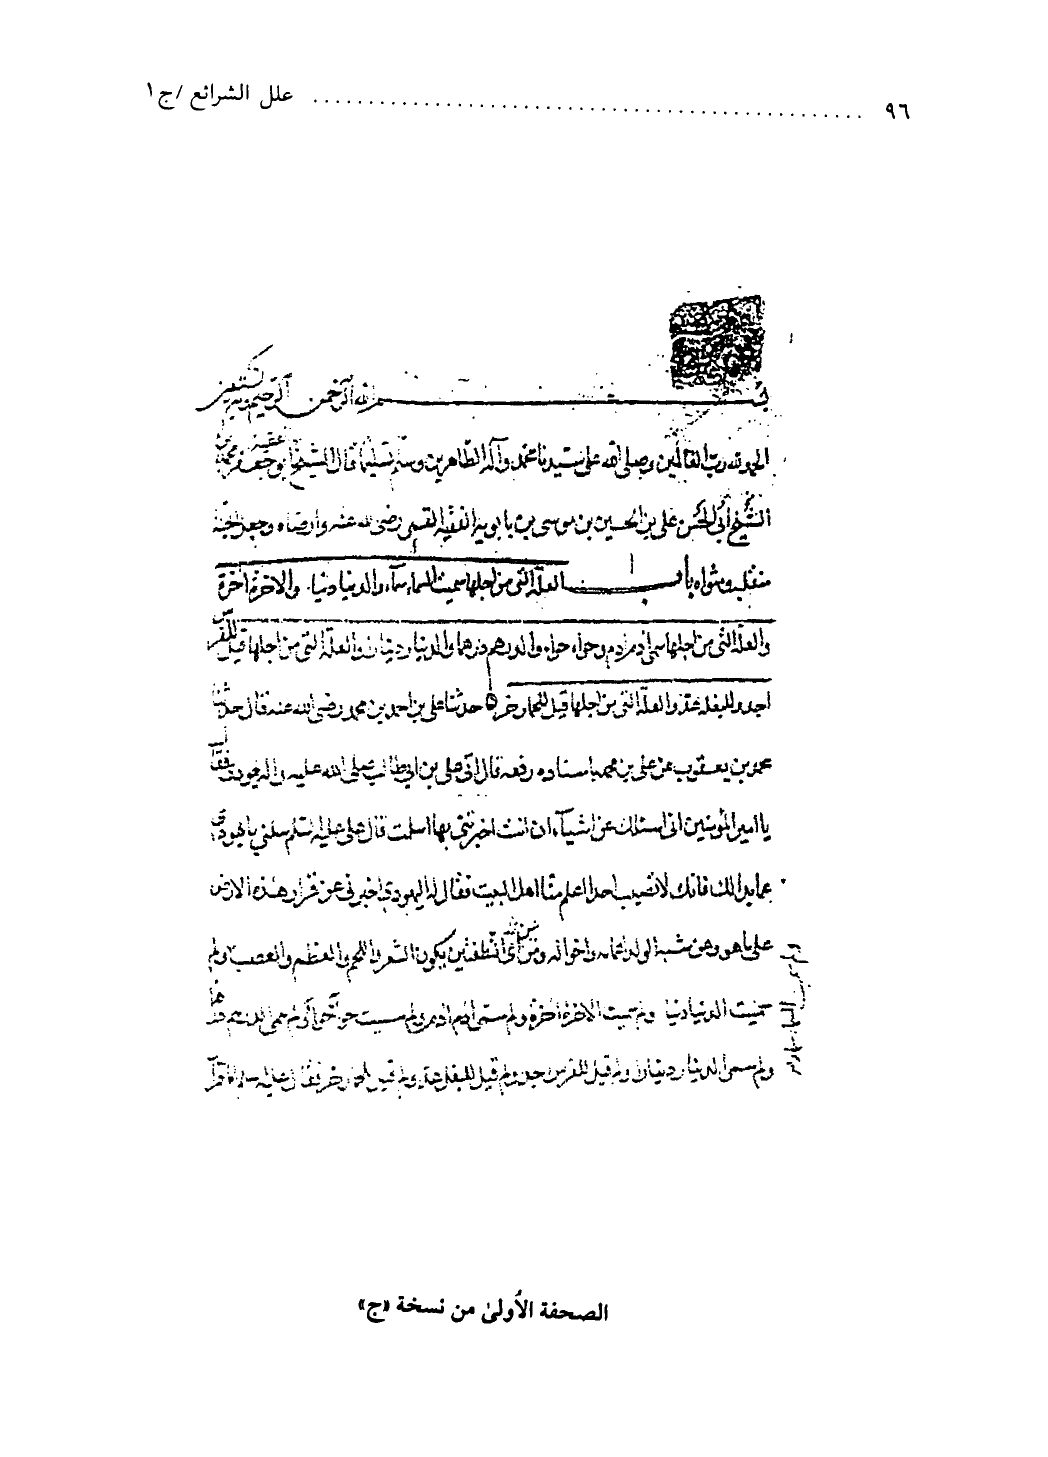 ٩٦ ............................................ علل الشرائع /ج١
بسم الله الرحمن الرحيم وبه نستعين
الحمد لله رب العالمين وصلى الله على سيدنا محمد وآله الطاهرين وسلم تسليما قال الشيخ ابو جعفر محمد بن
الشيخ أبي الحسن علي بن الحسين بن موسى بن بابويه الفقيه القمي رضى الله عنه وارضاه وجعل الجنة
منقلبه ومثواه باب العلة التى من اجلها سميت السماء سماء والدنيا دنيا والاخرة اخرة
والعلة التى من اجلها سمى ادم ادم وحواء حواء والدرهم درهما والدينار دينارا والعلة التى من اجلها قيل للفرس
اجد وللبغلة عد والعلة التى من اجلها قيل للحمار حر حدثنا على بن احمد بن محمد رضى الله عنه قال حدثنا
محمد بن يعقوب عن على بن محمد باسناده رفعه قال اتى على بن ابى طالب صلى الله عليه يهودى فقال
يا امير المؤمنين انى اسئلك عن اشياء ان انت اخبرتنى بها اسلمت قال على عليه السلم سلنى يا يهودى
عما بدا لك فانك لا تصيب احدا اعلم منا اهل البيت فقال له اليهودى اخبرنى عن قرار هذه الارض
على ما هو وعن شبه الولد اعمامه واخواله ومن أى النطفتين يكون الشعر واللحم والعظم والعصب ولم
سميت الدنيا دنيا ولم سميت الاخرة اخرة ولم سمى آدم ادم ولم سميت حواء حواء ولم سمى الدرهم درهما
ولم سمى الدينار دينارا ولم قيل للفرس اجد ولم قيل للبغل عد ولم قيل للحمار حر فقال عليه السلام اما قرار
الصحفة الأولىٰ من نسخة «ج»